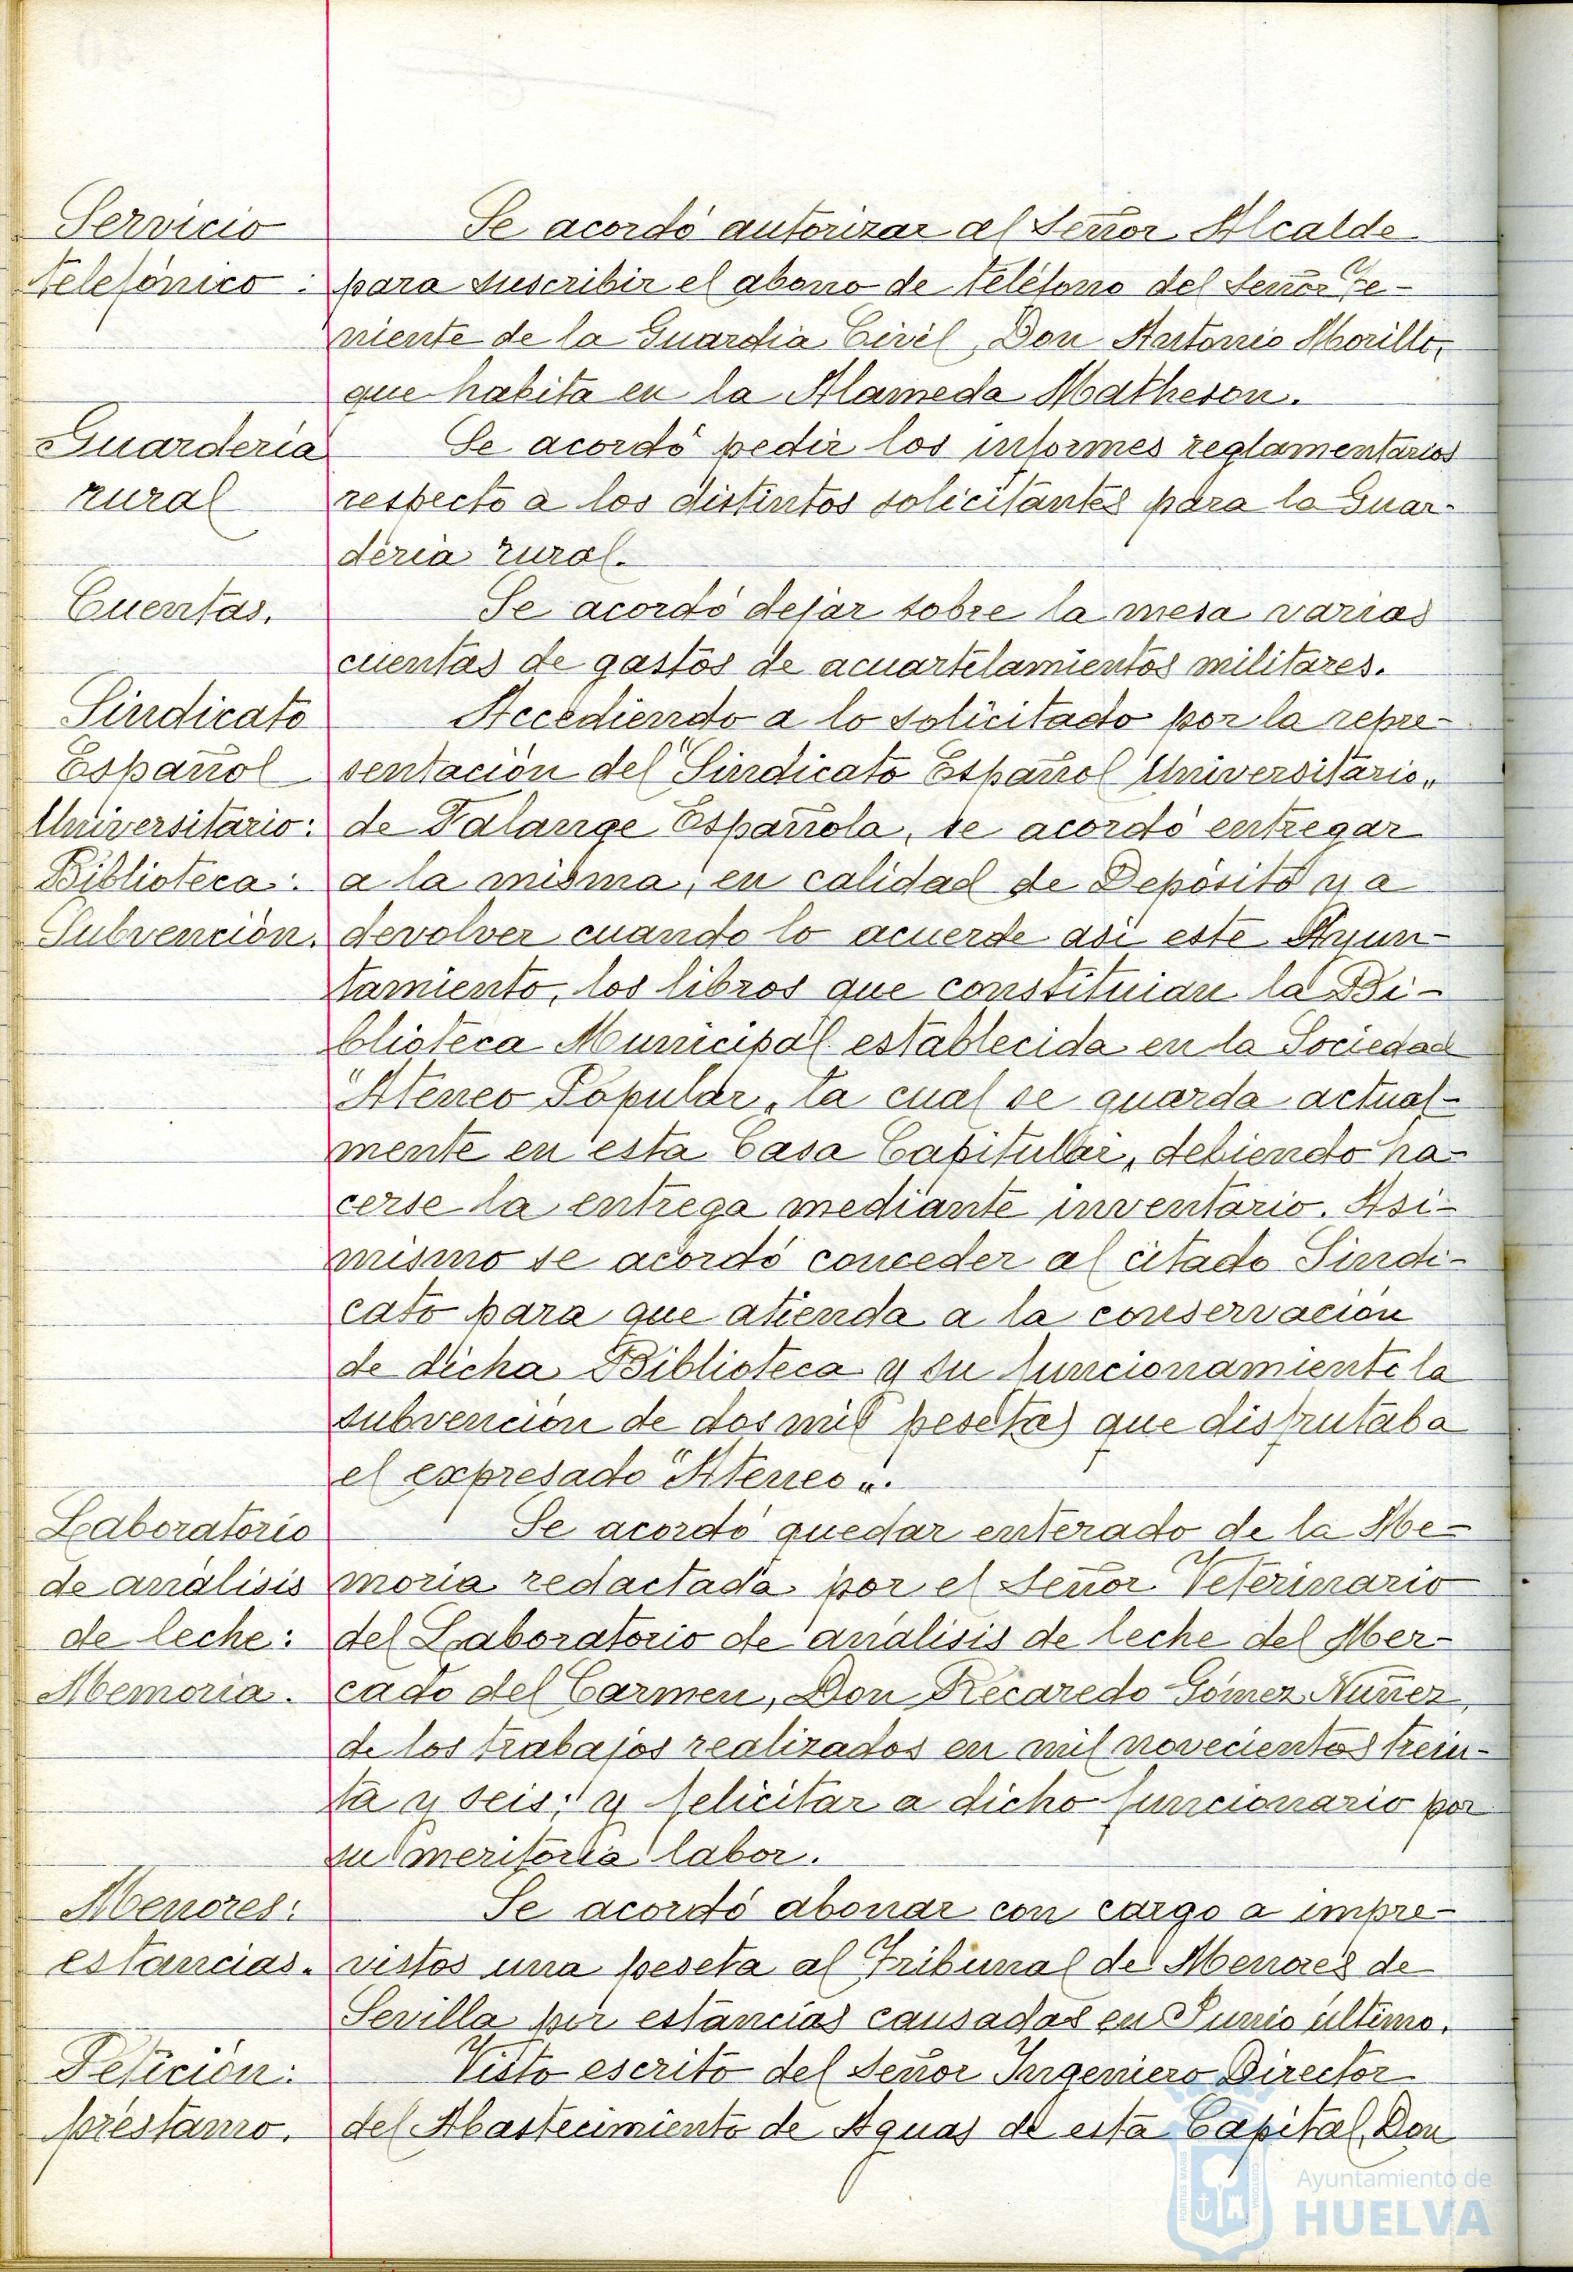 Servicio
telefónico:
Se acordó autorizar al Señor Alcalde
para suscribir el abono de teléfono del Señor Te-
niente de la Guardia Civil, Don Antonio Morillo,
que habita en la Alameda Matheson.
Guardería
rural
Se acordó pedir los informes reglamentarios
respecto a los distintos solicitantes para la Guar-
dería rural.
Cuentas.
Se acordó dejar sobre la mesa varias
cuentas de gastos de acuartelamientos militares.
Sindicato
Español
Universitario:
Biblioteca:
Subvención.
Accediendo a lo solicitado por la repre-
sentación del "Sindicato Español Universitario"
de Falange Española, se acordó entregar
a la misma, en calidad de Depósito y a
devolver cuando lo acuerde así este Ayun-
tamiento, los libros que constituian la Bi-
blioteca Municipal establecida en la Sociedad
"Ateneo Popular", la cual se guarda actual-
mente en esta Casa Capitular, debiendo ha-
cerse la entrega mediante inventario. Asi-
mismo se acordó conceder al citado Sindi-
cato para que atienda a la conservación
de dicha Biblioteca y su funcionamiento la
subvención de dos mil pesetas que disfrutaba
el expresado "Ateneo".
Laboratorio
de análisis
de leche:
Memoria.
Se acordó quedar enterado de la Me-
moria redactada por el Señor Veterinario
del Laboratorio de análisis de leche del Mer-
cado del Carmen, Don Recaredo Gómez Nuñez,
de los trabajos realizados en mil novecientos trein-
ta y seis; y felicitar a dicho funcionario por
su meritoria labor.
Menores:
estancias.
Se acordó abonar con cargo a impre-
vistos una peseta al Tribunal de Menores de
Sevilla por estancias causadas en Junio último.
Petición:
préstamo.
Visto escrito del Señor Ingeniero Director
del Abastecimiento de Aguas de esta Capital, Don
PORTUS MARIS
CUSTODIA
Ayuntamiento de
HUELVA